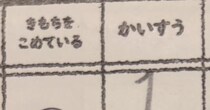 きもちを
こめている
かいすう
1